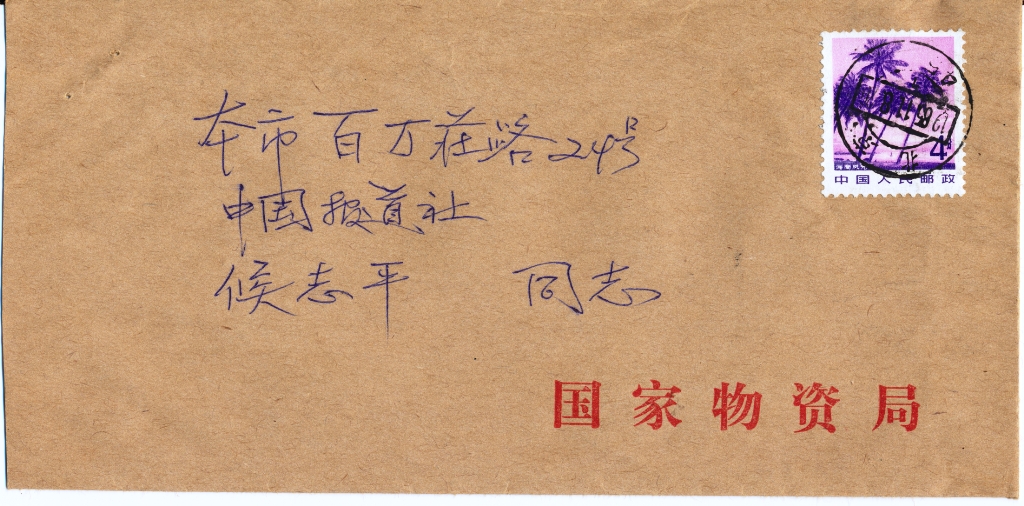 本市百万莊路24号
中国报道社
候志平 同志
国家物资局
中国人民邮政
4
北京